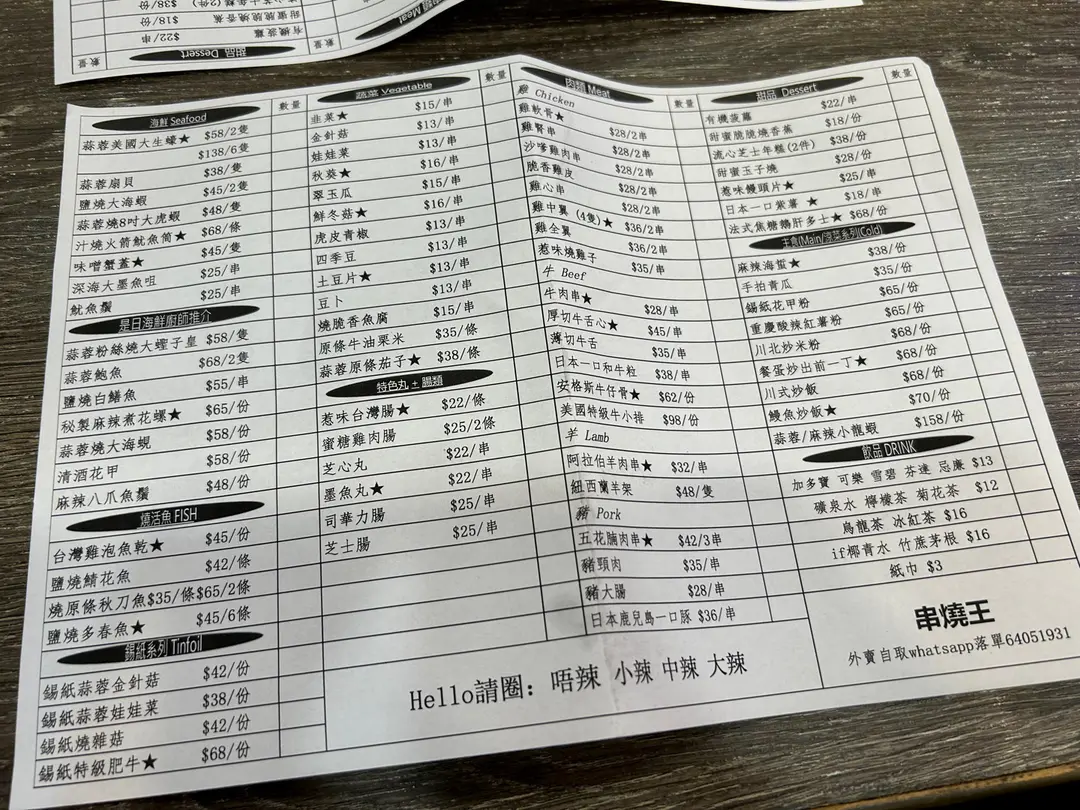 數量
$22/串
有機菠蘿
$18/份
甜蜜脆脆燒香蕉
$38/份
甜品 Dessert
數量
肉類 Meat
海鮮 Seafood
數量
蒜蓉美國大生蠔★ $58/2隻
$138/6隻
蒜蓉扇貝 $38/隻
鹽燒大海蝦 $45/2隻
蒜蓉燒8吋大虎蝦 $48/隻
汁燒火箭魷魚筒★ $68/條
味噌蟹蓋★ $45/隻
深海大墨魚咀 $25/串
魷魚鬚 $25/串
是日海鮮廚師推介
蒜蓉粉絲燒大蟶子皇 $58/隻
蒜蓉鮑魚 $68/2隻
鹽燒白鱔魚 $55/串
秘製麻辣煮花螺★ $65/份
蒜蓉燒大海蜆 $58/份
清酒花甲 $58/份
麻辣八爪魚鬚 $48/份
燒活魚 FISH
台灣雞泡魚乾★ $45/份
鹽燒鯖花魚 $42/條
燒原條秋刀魚$35/條$65/2條
鹽燒多春魚★ $45/6條
錫紙系列 Tinfoil
錫紙蒜蓉金針菇 $42/份
錫紙蒜蓉娃娃菜 $38/份
錫紙燒雜菇 $42/份
錫紙特級肥牛★ $68/份
蔬菜 Vegetable
數量
韭菜★ $15/串
金針菇 $13/串
娃娃菜 $13/串
秋葵★ $16/串
翠玉瓜 $15/串
鮮冬菇★ $16/串
虎皮青椒 $13/串
四季豆 $13/串
土豆片★ $13/串
豆卜 $13/串
燒脆香魚腐 $15/串
原條牛油粟米 $35/條
蒜蓉原條茄子★ $38/條
特色丸±腸類
惹味台灣腸★ $22/條
蜜糖雞肉腸 $25/2條
芝心丸 $22/串
墨魚丸★ $22/串
司華力腸 $25/串
芝士腸 $25/串
肉類 Meat
數量
雞 Chicken
雞軟骨★ $28/2串
雞腎串 $28/2串
沙嗲雞肉串 $28/2串
脆香雞皮 $28/2串
雞心串 $28/2串
雞中翼 (4隻)★ $36/2串
雞全翼 $36/2串
惹味燒雞子 $35/串
牛 Beef
牛肉串★ $28/串
厚切牛舌心★ $45/串
薄切牛舌 $35/串
日本一口和牛粒 $38/串
安格斯牛仔骨★ $62/份
美國特級牛小排 $98/份
羊 Lamb
阿拉伯羊肉串★ $32/串
紐西蘭羊架 $48/隻
豬 Pork
五花腩肉串★ $42/3串
豬頸肉 $35/串
豬大腸 $28/串
日本鹿兒島一口豚 $36/串
甜品 Dessert
數量
有機菠蘿 $22/串
甜蜜脆脆燒香蕉 $18/份
流心芝士年糕(2件) $38/份
甜蜜玉子燒 $28/份
惹味饅頭片★ $25/串
日本一口紫薯 ★ $18/串
法式焦糖鵝肝多士★ $68/份
主食(Main/涼菜系列(Cold)
麻辣海蜇★ $38/份
手拍青瓜 $35/份
錫紙花甲粉 $65/份
重慶酸辣紅薯粉 $65/份
川北炒米粉 $68/份
餐蛋炒出前一丁★ $68/份
川式炒飯 $68/份
鰻魚炒飯★ $70/份
蒜蓉/麻辣小龍蝦 $158/份
飲品 DRINK
加多寶 可樂 雪碧 芬達 忌廉 $13
礦泉水 檸檬茶 菊花茶 $12
烏龍茶 冰紅茶 $16
if椰青水 竹蔗茅根 $16
紙巾 $3
Hello請圈: 唔辣 小辣 中辣 大辣
串燒王
外賣自取whatsapp落單64051931